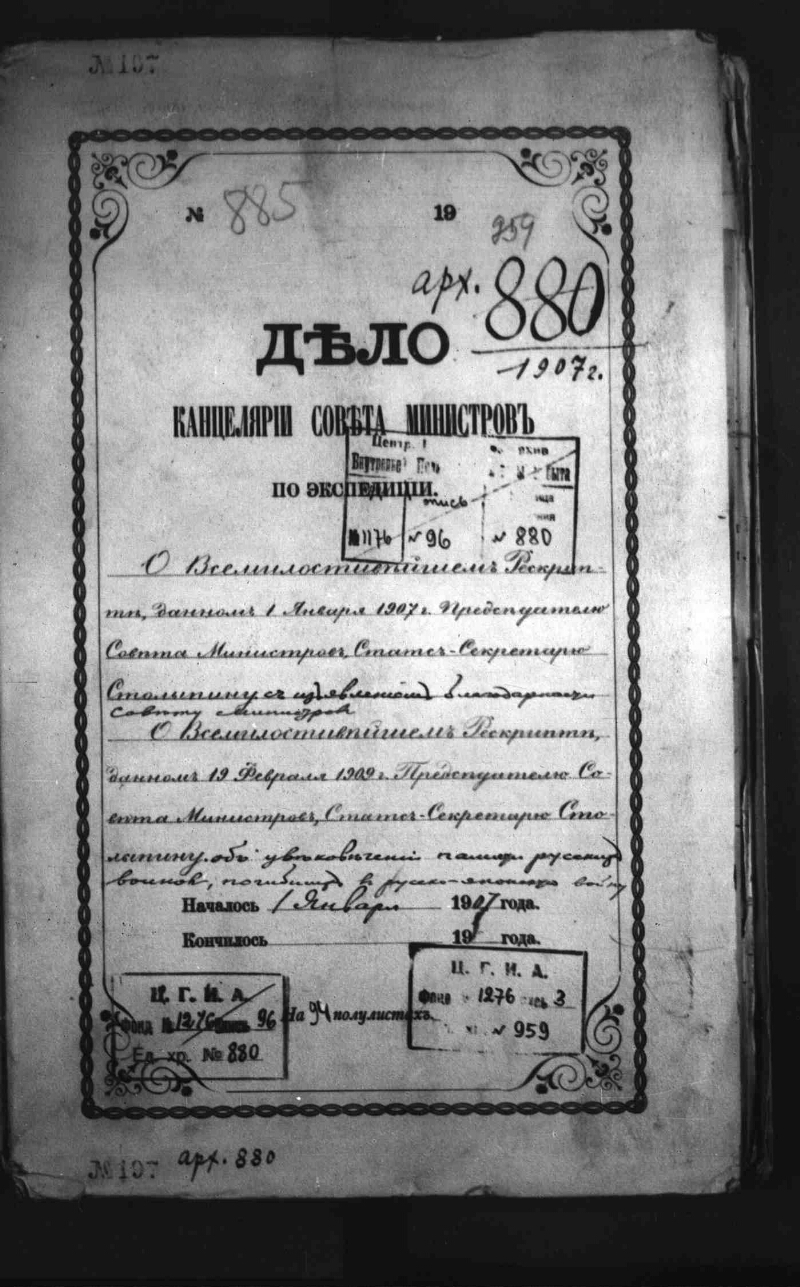 № 197
№ 885 19
959
арх. 880
ДѢЛО
1907 г.
КАНЦЕЛЯРІИ СОВѢТА МИНИСТРОВЪ
Центр.
ПО ЭКСПЕДИЦІИ.
№ 1176 № 96 № 880
О Всемилостивѣйшемъ Рескрип-
тѣ, данномъ 1 Января 1907 г. Предсѣдателю
Совѣта Министровъ, Статсъ-Секретарю
Столыпину съ изъявленіемъ благодарности
Совѣту Министровъ
О Всемилостивѣйшемъ Рескриптѣ,
данномъ 19 Февраля 1909 г. Предсѣдателю Со-
вѣта Министровъ, Статсъ-Секретарю Сто-
лыпину. объ увѣковѣченіи памяти русскихъ
воиновъ, погибшихъ в русско-японскую войну
Началось 1 Января 1907 года.
Кончилось 19 года.
Ц. Г. И. А.
Фонд № 1276 опись 96
Ед. хр. № 880
На 94 полулистахъ.
Ц. Г. И. А.
Фонд № 1276 оп. 3
№ 959
№ 197 арх. 880